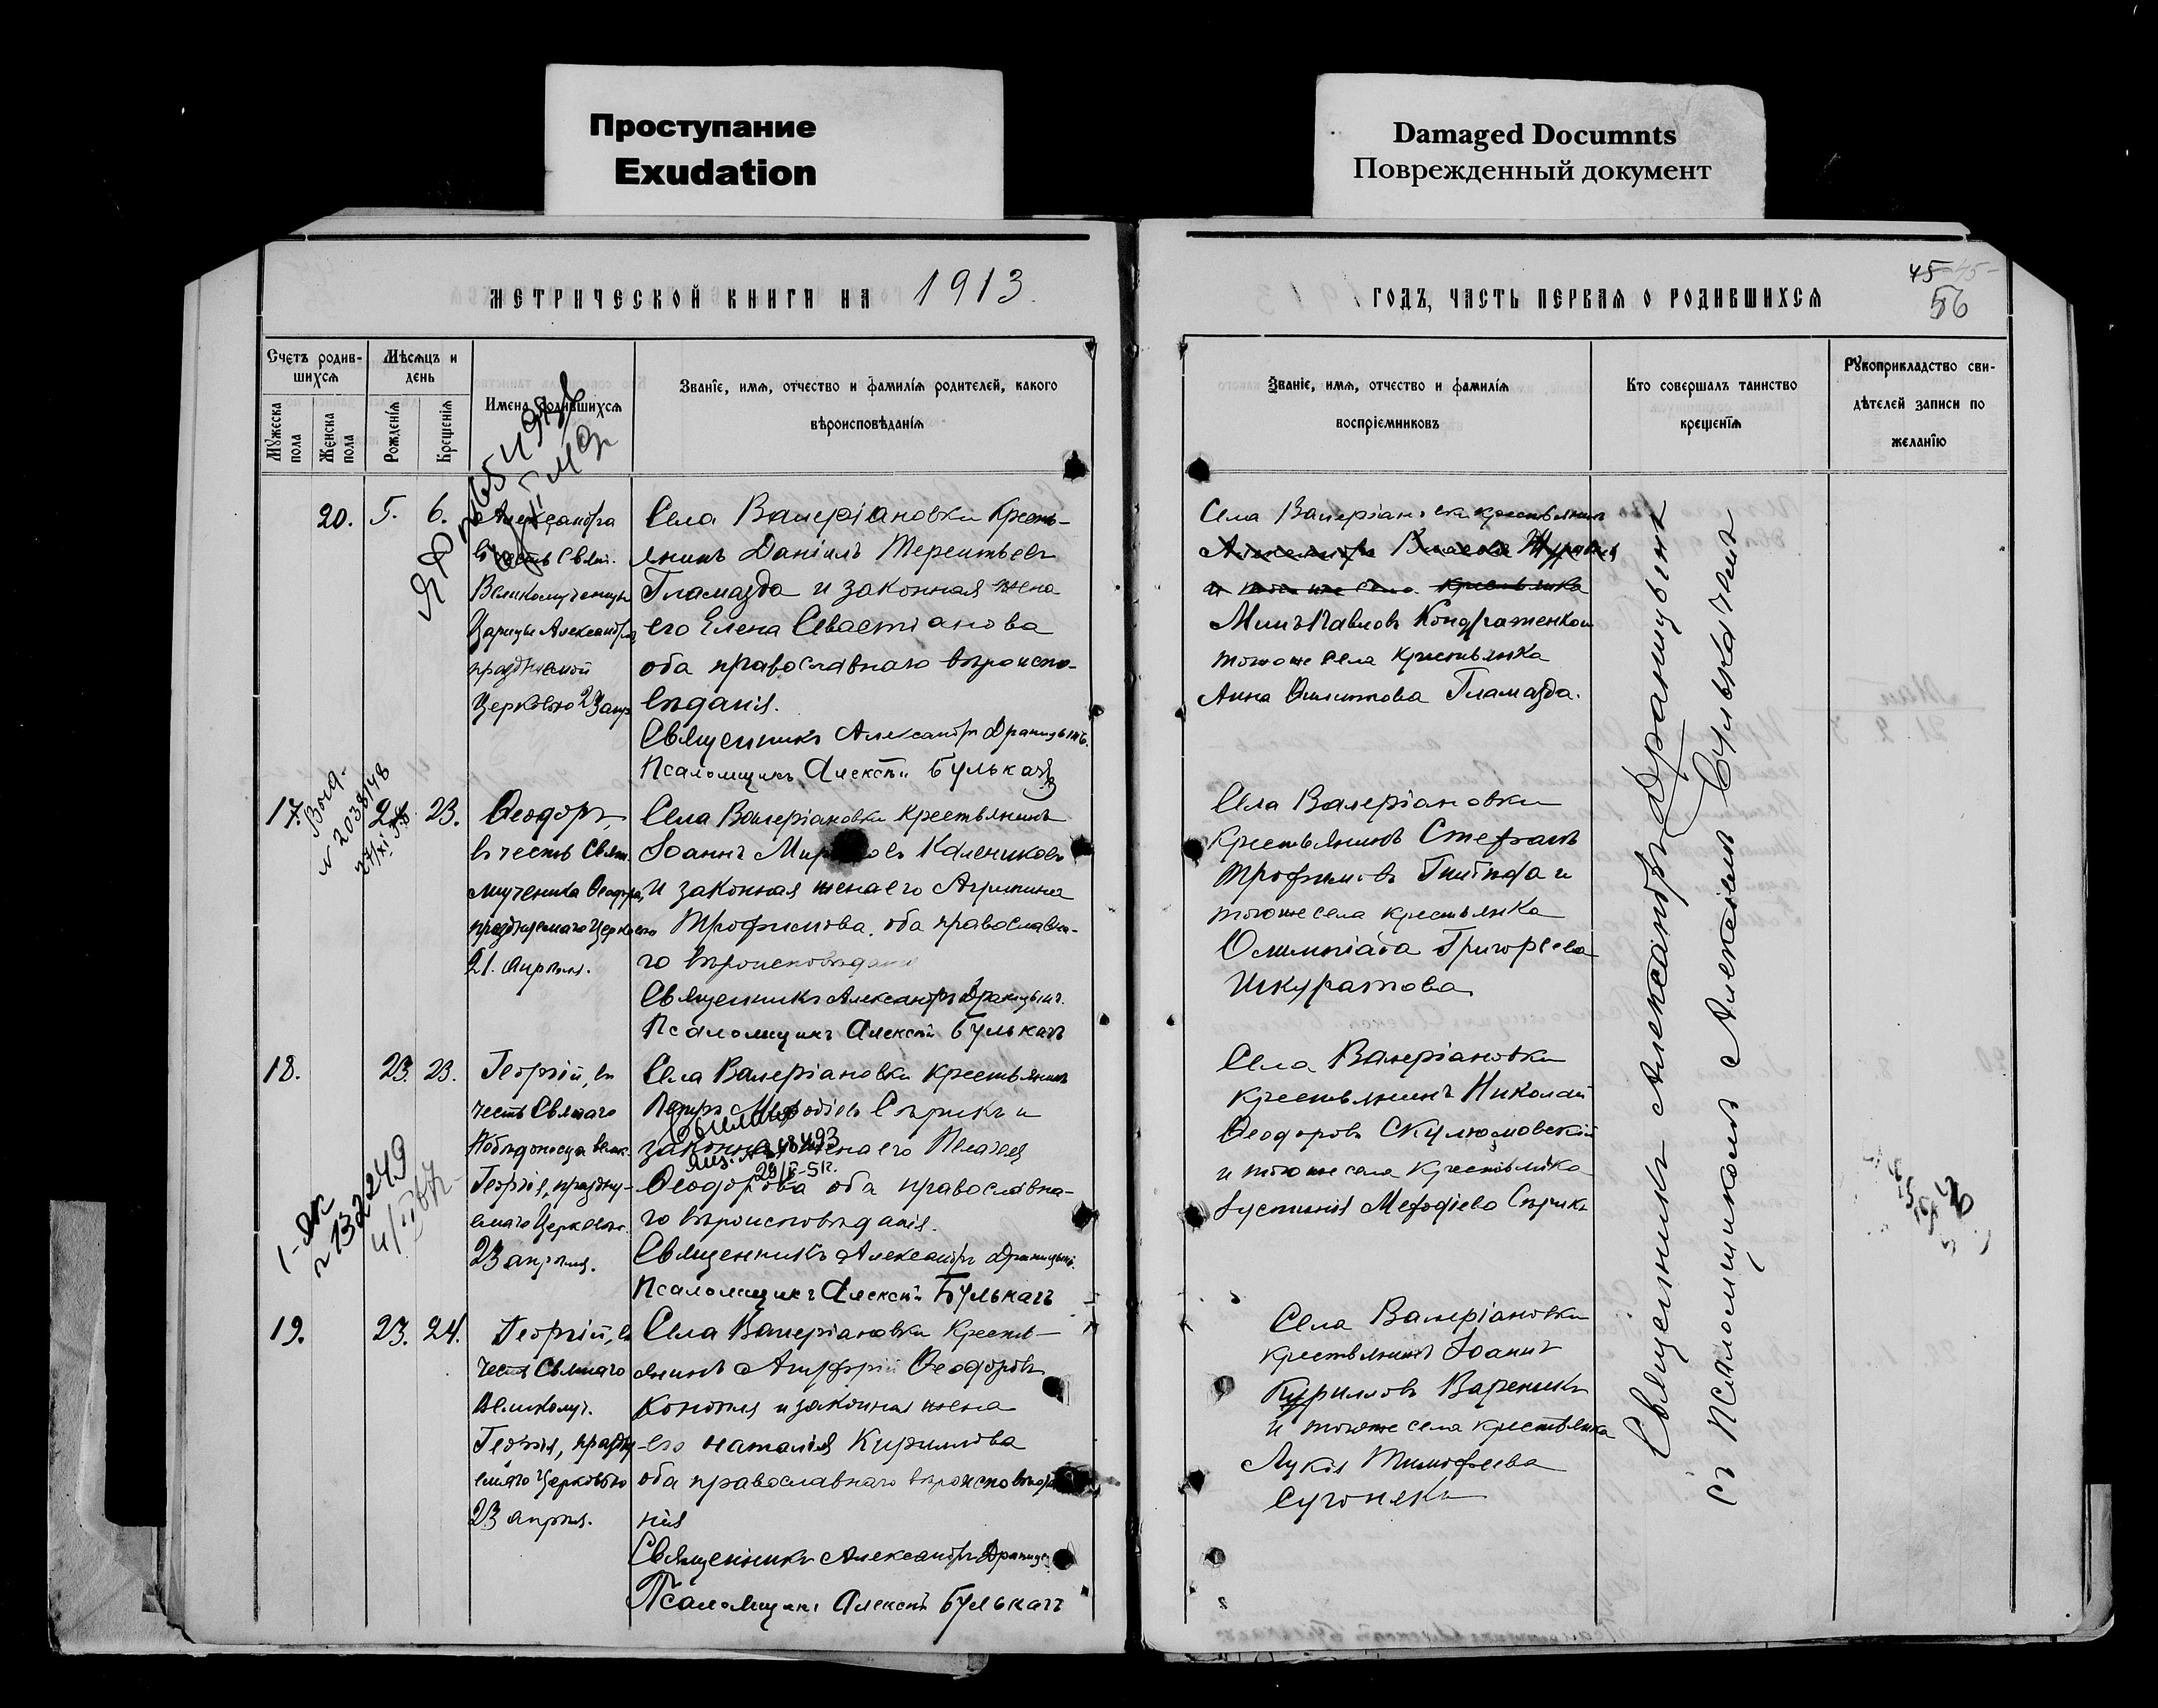 Проступание
Exudation
Damaged Documnts
Поврежденный документ
МЕТРИЧЕСКОЙ КНИГИ НА 1913
ГОДЪ, ЧАСТЬ ПЕРВАЯ О РОДИВШИХСЯ
45
56
Счетъ родив-
шихся
Мужеска пола
Женска пола
Мѣсяцъ и
день
Рожденія
Крещенія
Имена родившихся
Званіе, имя, отчество и фамилія родителей, какого
вѣроисповѣданія
Званіе, имя, отчество и фамилія
воспріемниковъ
Кто совершалъ таинство
крещенія
Рукоприкладство сви-
дѣтелей записи по
желанію
20. 5. 6.
Александра
въ честь Свят.
Великомученицы
Царицы Александры
празднуемой
Церковью 23 апр
Села Валеріановки Кресть-
янинъ Даніилъ Терентьевъ
Гламазда и законная жена
его Елена Севастіанова
оба православнаго вѣроиспо-
вѣданія.
Священникъ Александръ Драницынъ.
Псаломщикъ Алексѣй Булькачъ
Села Валеріановки крестьянинъ
и того же села крестьянка
Павловъ Кондратенков
того же села крестьянка
Анна Гламазда.
17. 23.
Ѳеодоръ,
въ честь Свят.
мученика Ѳеодора,
празднуемаго Церковью
21. апрѣля.
Села Валеріановки крестьянинъ
Іоаннъ Калениковъ
и законная жена его Агрипина
Трофимова, оба православна-
го вѣроисповѣданія
Священникъ Александръ Драницынъ.
Псаломщикъ Алексѣй Булькачъ
Села Валеріановки
крестьянинъ Стефанъ
Трофимовъ и
того же села крестьянка
Олимпіада Григорьева
Шкуратова
№ 2038148
18. 23. 23.
Георгій, въ
честь Святаго
Побѣдоносца Велик.
Георгія, праздну-
емаго Церковью
23 апрѣля.
Села Валеріановки крестьянинъ
Петръ Меѳодіевъ Сѣрикъ и
законная жена его Пелагея
Ѳеодорова оба православна-
го вѣроисповѣданія.
Священникъ Александръ Драницынъ.
Псаломщикъ Алексѣй Булькачъ
Села Валеріановки
крестьянинъ Николай
Ѳеодоровъ
и того же села крестьянка
Іустинія Меѳодіева Сѣрикъ
№ 132249
19. 23. 24.
Георгій, въ
честь Святаго
Великомуч.
Георгія, праздну-
емаго Церковью
23 апрѣля.
Села Валеріановки Кресть-
янинъ Ѳеодоровъ
Конопля и законная жена
его Наталія Кириллова
оба православнаго вѣроисповѣда-
нія
Священникъ Александръ Драницы
Псаломщикъ Алексѣй Булькачъ
Села Валеріановки
крестьянинъ Іоаннъ
Кирилловъ Вареникъ
и того же села крестьянка
Лукія Тимоѳеева
Сугонякъ
Священникъ Александръ Драницынъ
съ Псаломщикомъ Алексѣемъ Булькачемъ